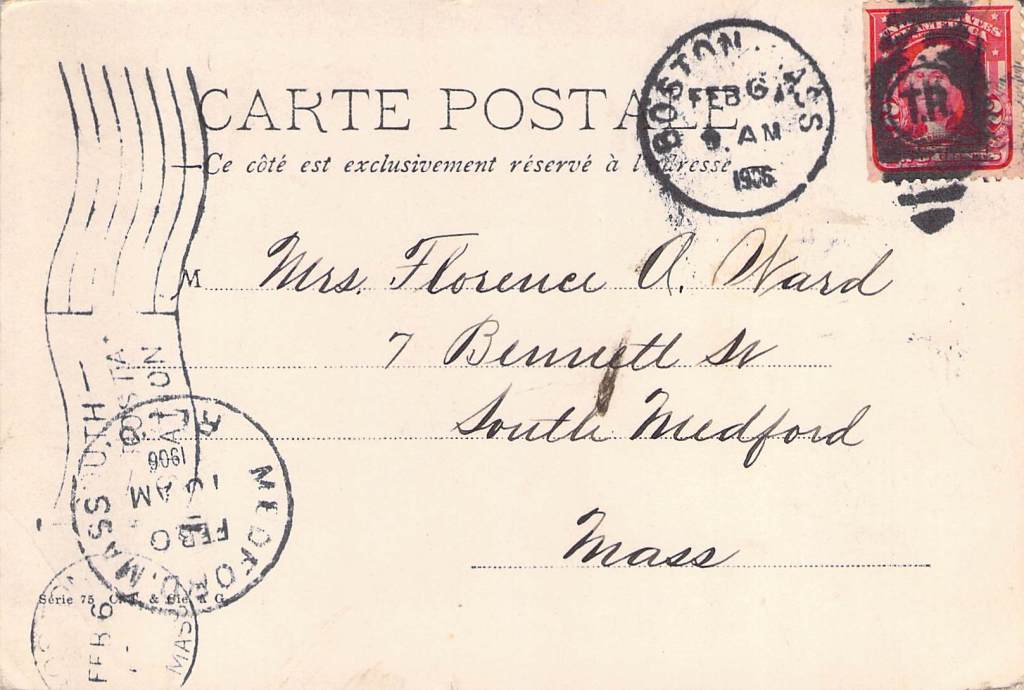 CARTE POSTALE
Ce côté est exclusivement réservé à l'adresse
BOSTON, MASS
FEB 6
9 AM
1906
T.R.
M Mrs. Florence A. Ward
7 Bennett St
South Medford
Mass
SOUTH
MEDFORD, MASS
FEB 6
10 AM
1906
FEB 6
MASS
Série 75